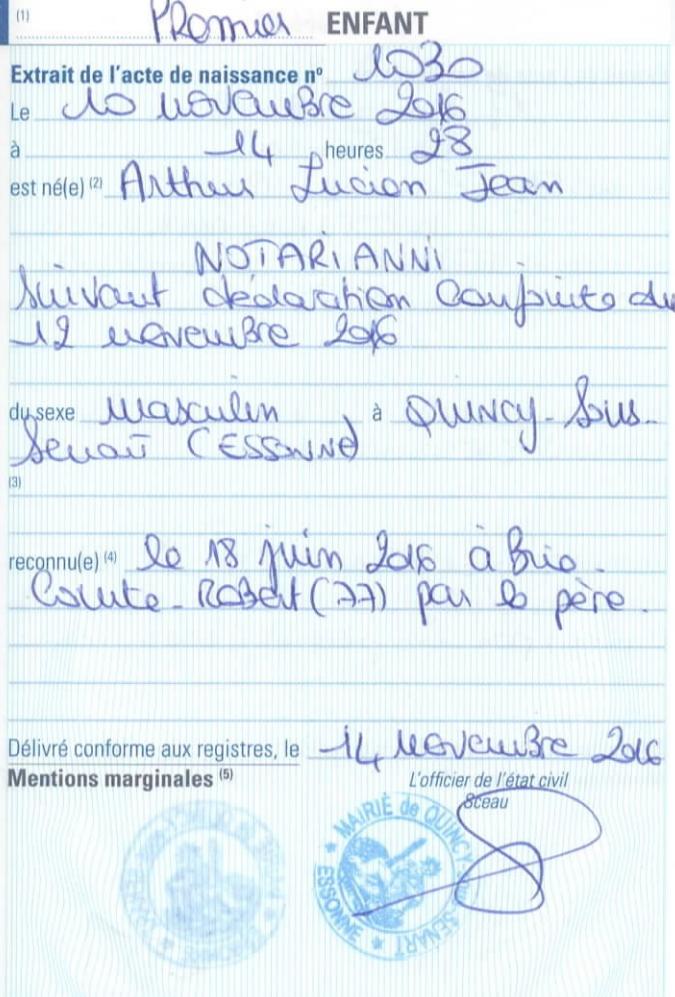 (1) Premier ENFANT
Extrait de l'acte de naissance nº 1030
Le 10 novembre 2016
à 14 heures 28
est né(e) (2) Arthur Lucien Jean
NOTARIANNI
suivant déclaration conjointe du
12 novembre 2016
du sexe Masculin à QUINCY-Sous-
Senart (ESSONNE)
(3)
reconnu(e) (4) le 18 juin 2016 à Brie-
Comte-Robert (77) par le père.
Délivré conforme aux registres, le 14 novembre 2016
Mentions marginales (5) L'officier de l'état civil
Sceau
MAIRIE de QUINCY SENART
ESSONNE